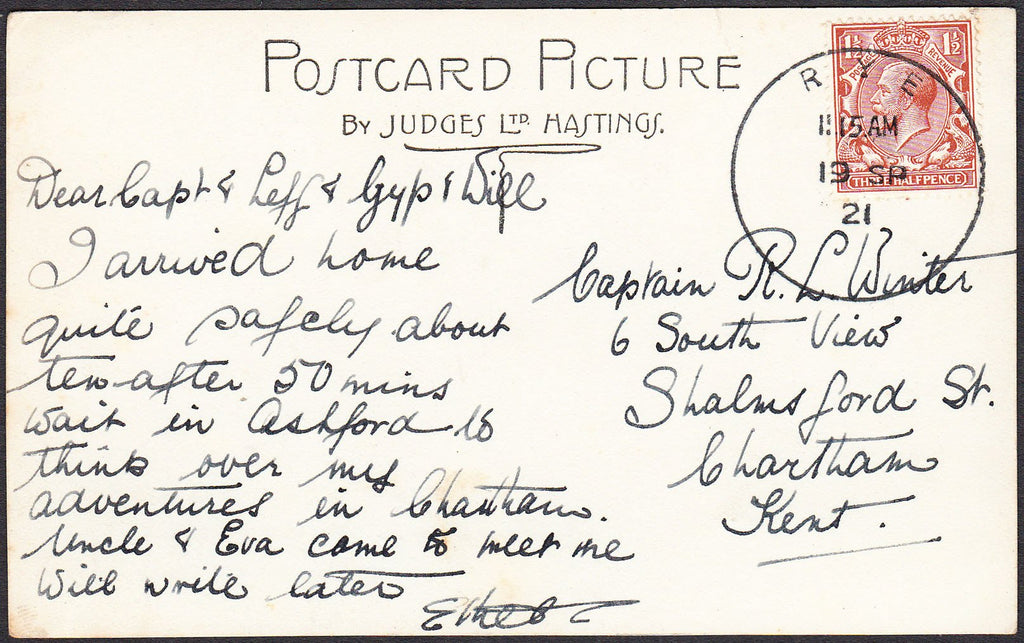 POSTCARD PICTURE
BY JUDGES LTD. HASTINGS.
1½ 1½
POSTAGE REVENUE
THREE HALFPENCE
RYE
11.15 AM
19 SP
21
Dear Capt & Leff & Gyp & Will
I arrived home
quite safely about
ten after 50 mins
wait in Ashford to
think over my
adventures in Chartham.
Uncle & Eva came to meet me
Will write later
Captain R. L. Winter
6 South View
Shalmsford St.
Chartham
Kent.